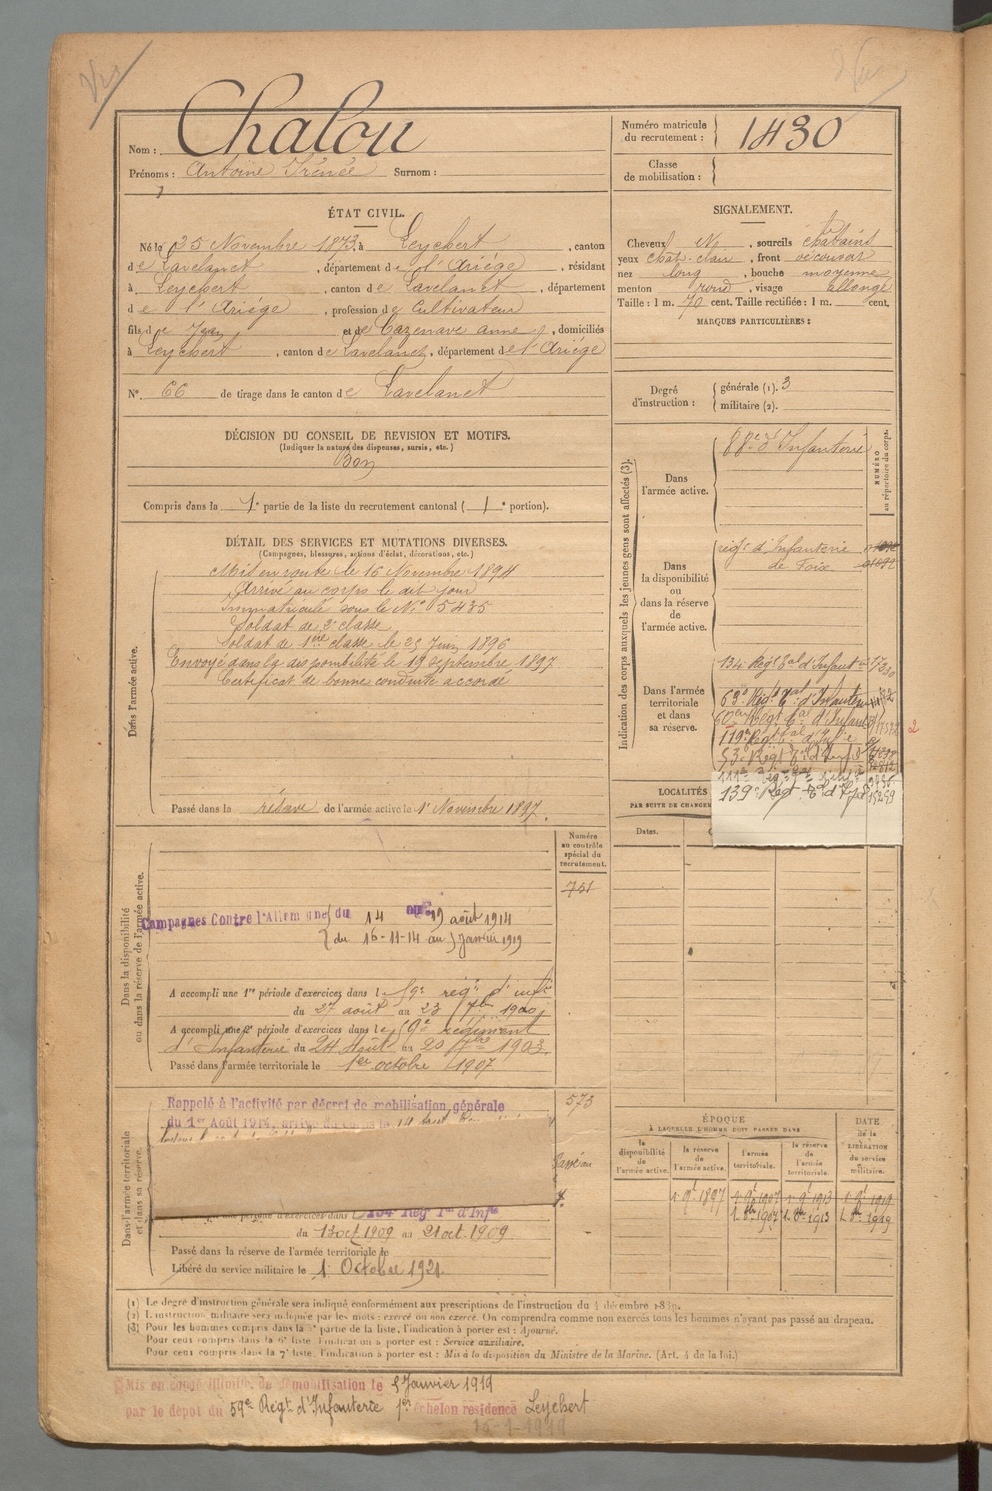 Nom : Chalou
Prénoms : Antoine Irénée Surnom :
Numéro matricule du recrutement : 1430
Classe de mobilisation :
ÉTAT CIVIL.
Né le 25 Novembre 1873, à Leychert, canton
de Lavelanet, département de l'Ariège, résidant
à Leychert, canton de Lavelanet, département
de l'Ariège, profession de Cultivateur
fils de Jean et de Cazenave Anne, domiciliés
à Leychert, canton de Lavelanet, département de l'Ariège
N° 66 de tirage dans le canton de Lavelanet
SIGNALEMENT.
Cheveux N, sourcils chatains
yeux chat-clair, front découvert
nez long, bouche moyenne
menton rond, visage allongé
Taille : 1 m. 70 cent. Taille rectifiée : 1 m. cent.
MARQUES PARTICULIÈRES :
Degré d'instruction : générale (1). 3
militaire (2).
DÉCISION DU CONSEIL DE REVISION ET MOTIFS.
(Indiquer la nature des dispenses, sursis, etc.)
Bon
Compris dans la 1e partie de la liste du recrutement cantonal ( 1e portion).
DÉTAIL DES SERVICES ET MUTATIONS DIVERSES.
(Campagnes, blessures, actions d'éclat, décorations, etc.)
Dans l'armée active.
Mis en route le 16 Novembre 1894
Arrivé au corps le dit jour
Immatriculé sous le N° 5435
Soldat de 2e classe
Soldat de 1ère classe le 25 Juin 1896
Envoyé dans la disponibilité le 19 septembre 1897
Certificat de bonne conduite accordé
Passé dans la réserve de l'armée active le 1r Novembre 1897.
Indication des corps auxquels les jeunes gens sont affectés (3).
NUMÉRO au répertoire du corps.
Dans l'armée active.
88e d'Infanterie
Dans la disponibilité ou dans la réserve de l'armée active.
régt d'Infanterie
de Foix
Dans l'armée territoriale et dans sa réserve.
134e Régt tal d'Infant
63e Régt tal d'Infanterie
119e Régt tal d'Inf
53e Régt tal d'Inf
139e Régt tal d'Inf
LOCALITÉS
PAR SUITE DE CHANGE
Dates.
Dans la disponibilité ou dans la réserve de l'armée active.
Numéro au contrôle spécial du recrutement.
751
Campagnes Contre l'Allemagne du 14 au 19 août 1914
du 16-11-14 au 5 Janvier 1919
A accompli une 1re période d'exercices dans le 59e régt d'infie
du 27 août au 23 7bre 1900
A accompli une 2e période d'exercices dans le 59e régiment
d'Infanterie du 24 Août au 20 7bre 1903.
Passé dans l'armée territoriale le 1er octobre 1907
Dans l'armée territoriale et dans sa réserve.
Rappelé à l'activité par décret de mobilisation générale
du 1er Août 1914, arrivé au corps le 14 août
573
Passé au
période d'exercices dans le 134e Régt Tal d'Infie
du 13 oct 1909 au 21 oct. 1909
Passé dans la réserve de l'armée territoriale le
Libéré du service militaire le 1r Octobre 1921.
ÉPOQUE
À LAQUELLE L'HOMME DOIT PASSER DANS
la disponibilité de l'armée active.
la réserve de l'armée active.
l'armée territoriale.
la réserve de l'armée territoriale.
DATE de la LIBÉRATION du service militaire.
1r 9bre 1897 1r 9bre 1907 1r 9bre 1913 1r 9bre 1919
1r 8bre 1907 1r 8bre 1913 1r 8bre 1919
(1) Le degré d'instruction générale sera indiqué conformément aux prescriptions de l'instruction du 4 décembre 1889.
(2) L'instruction militaire sera indiquée par les mots : exercé ou non exercé. On comprendra comme non exercés tous les hommes n'ayant pas passé au drapeau.
(3) Pour les hommes compris dans la partie de la liste, l'indication à porter est : Ajourné.
Pour ceux compris dans la 6e liste, l'indication à porter est : Service auxiliaire.
Pour ceux compris dans la 7e liste, l'indication à porter est : Mis à la disposition du Ministre de la Marine. (Art. 4 de la loi.)
Mis en congé illimité de démobilisation le 5 Janvier 1919
par le dépôt du 59e Régt d'Infanterie 1er échelon résidence Leychert
15-1-1919